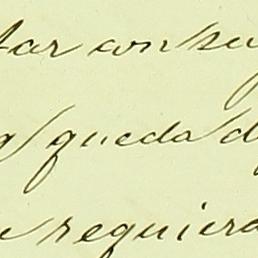 tar con su
queda d
e requiera